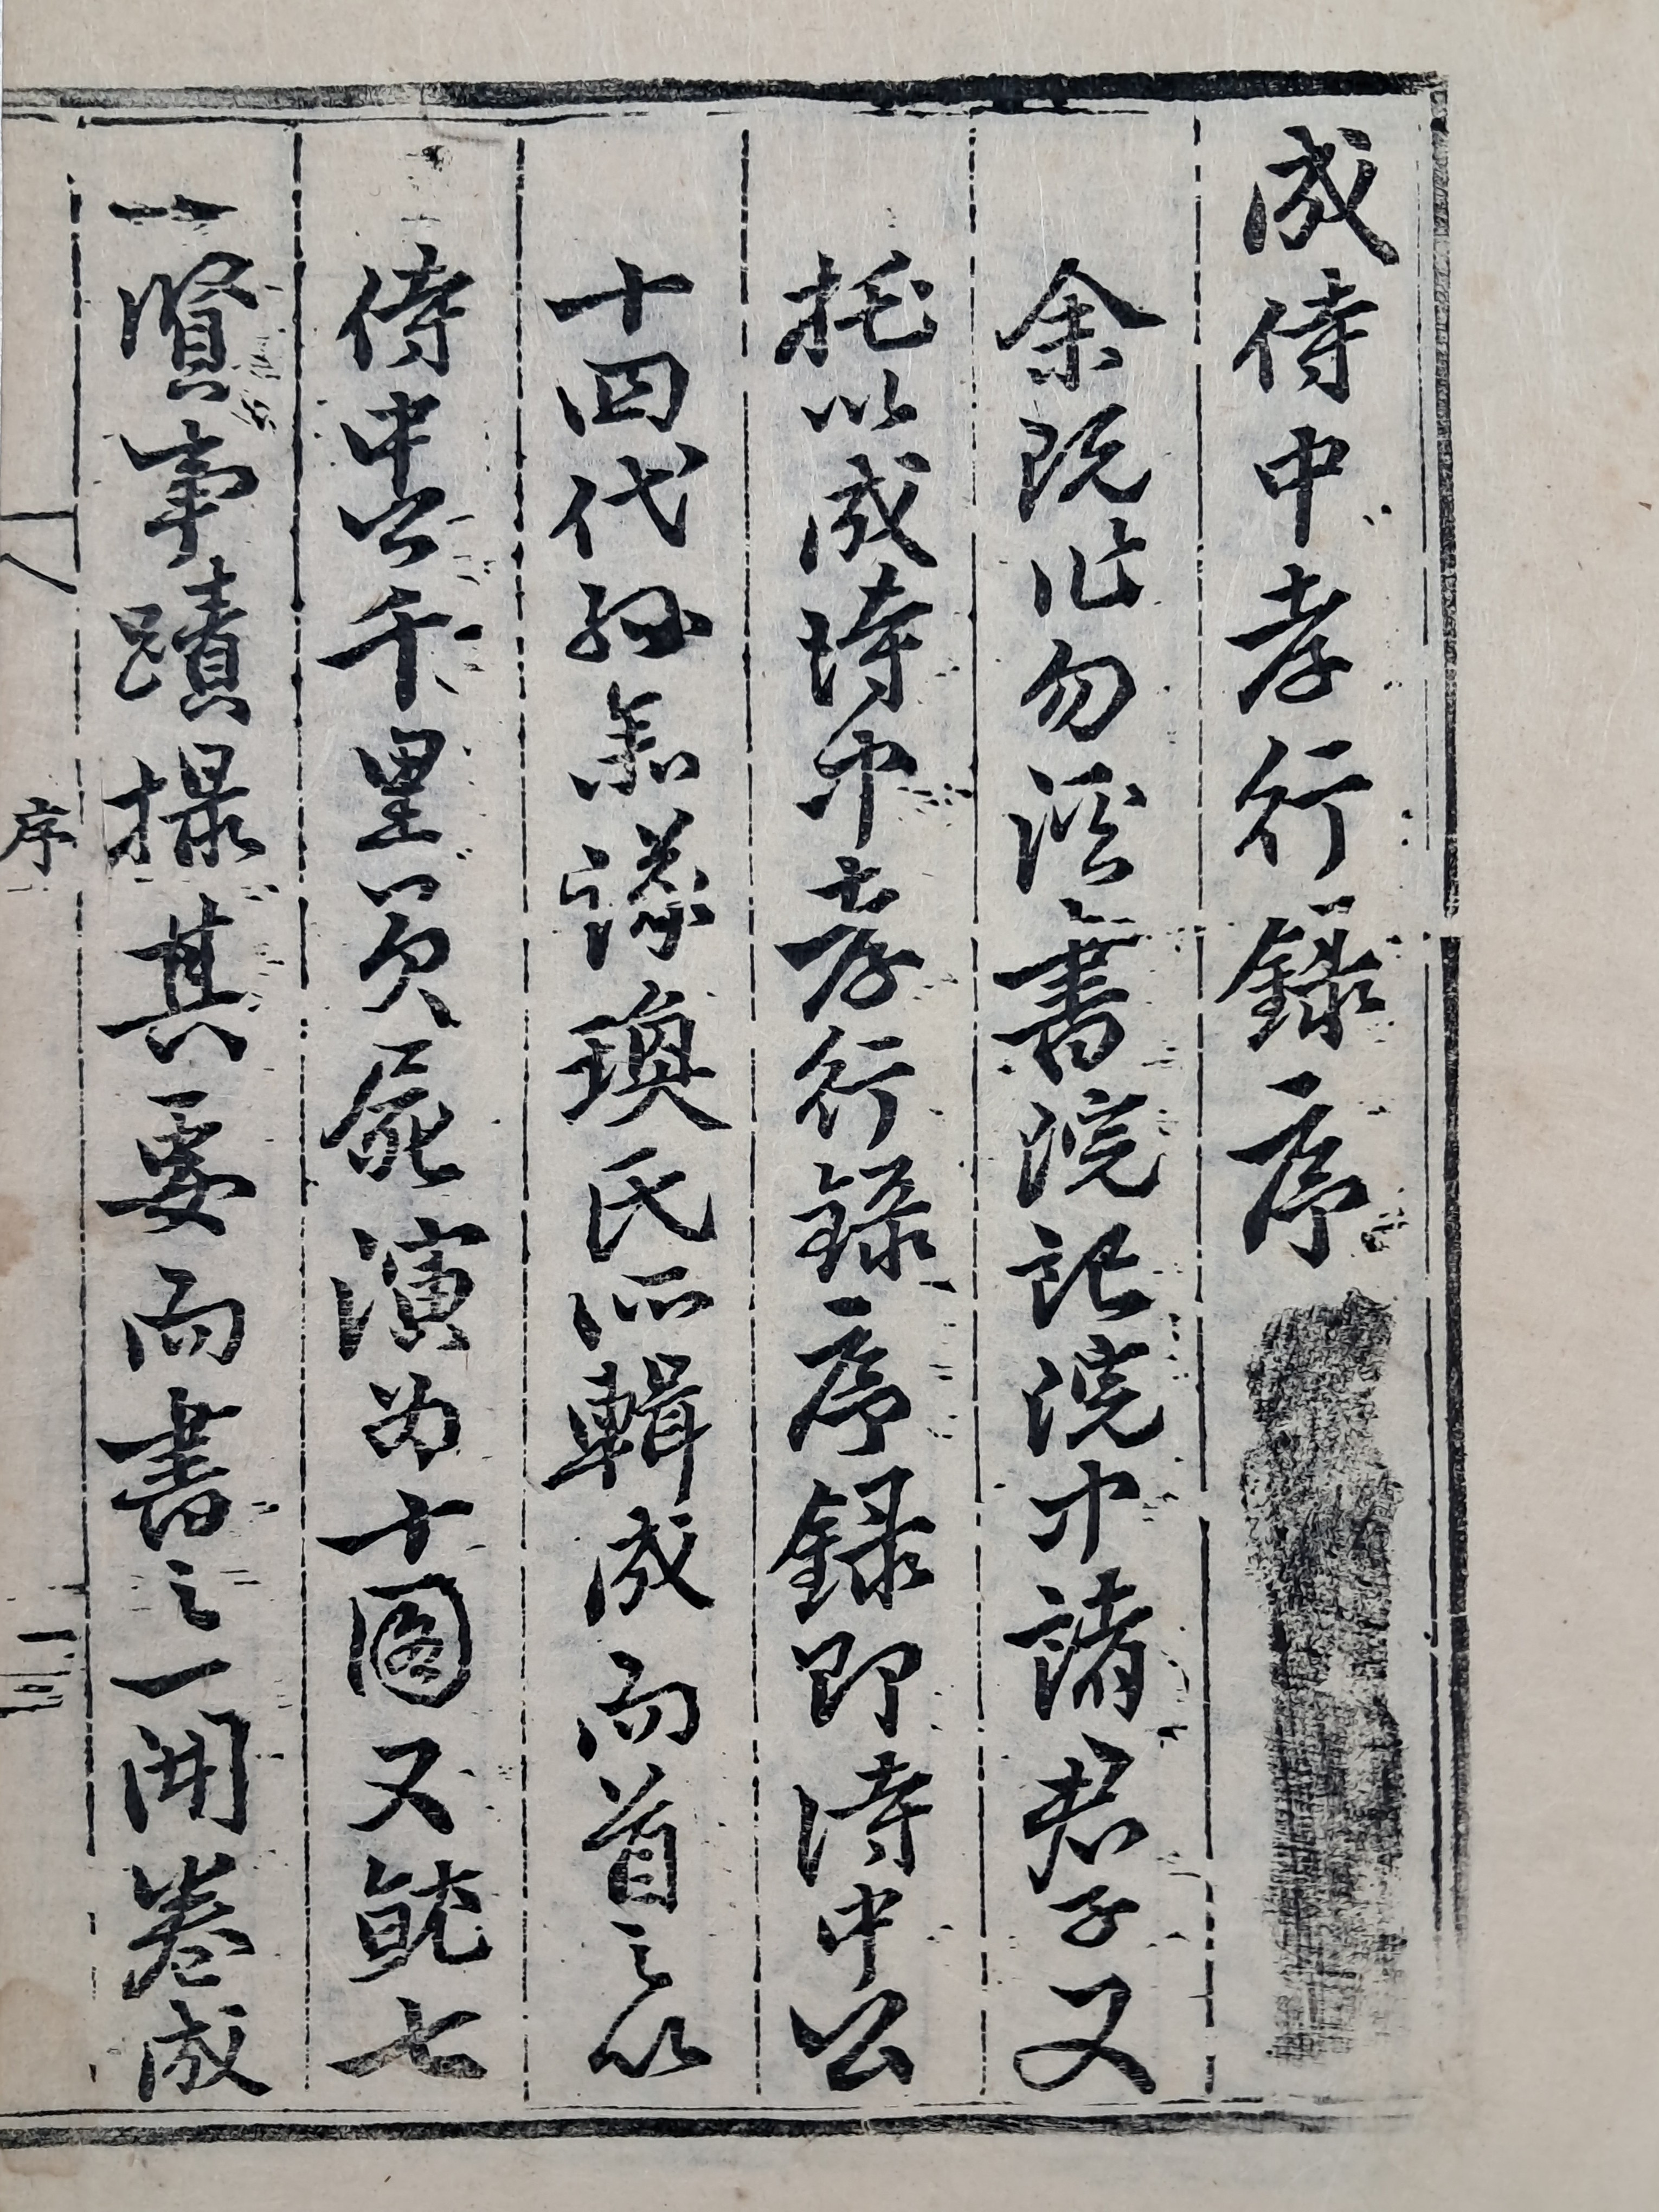 成侍中孝行錄序
余旣作勿溪書院記院中諸君子又
托以成侍中孝行錄序錄即侍中公
十四代孫參議瑍氏所輯成而首之以
侍中公千里負屍演为十圖又敍七
一賢事蹟撮其要而書之一開卷成
序